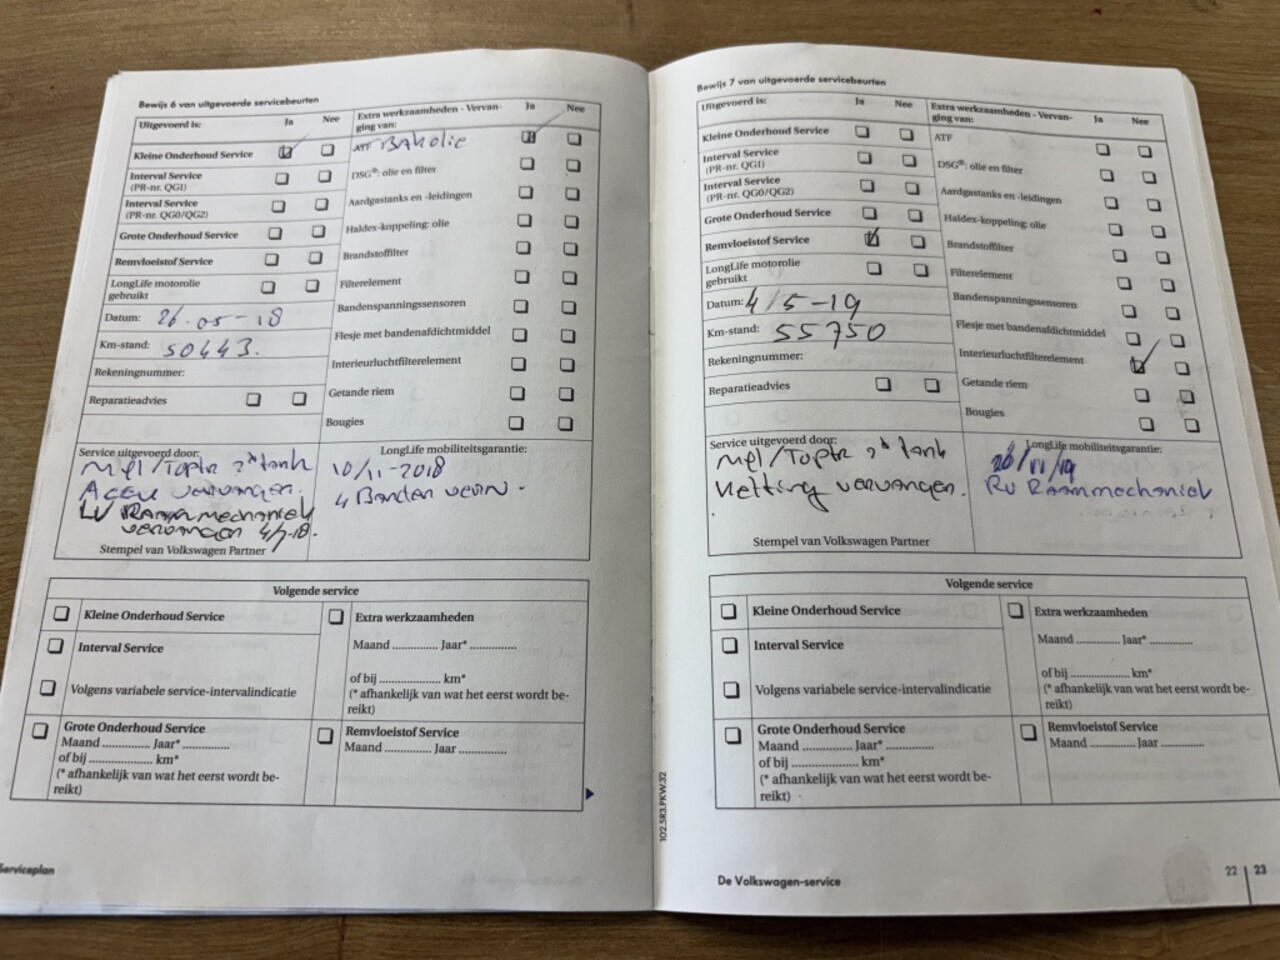 Bewijs 6 van uitgevoerde servicebeurten
Uitgevoerd is: Ja Nee
Kleine Onderhoud Service
Interval Service
(PR-nr. QG1)
Interval Service
(PR-nr. QG0/QG2)
Grote Onderhoud Service
Remvloeistof Service
LongLife motorolie
gebruikt
Datum: 26-05-18
Km-stand: 50443.
Rekeningnummer:
Reparatieadvies
Extra werkzaamheden - Vervan-
ging van: Ja Nee
ATF Bakolie
DSG®: olie en filter
Aardgastanks en -leidingen
Haldex-koppeling: olie
Brandstoffilter
Filterelement
Bandenspanningssensoren
Flesje met bandenafdichtmiddel
Interieurluchtfilterelement
Getande riem
Bougies
Service uitgevoerd door:
tank
Accu vervangen.
LV Raammechaniek
vervangen 4/7-18.
Stempel van Volkswagen Partner
LongLife mobiliteitsgarantie:
10/11-2018
4 Banden
Volgende service
Kleine Onderhoud Service
Interval Service
Volgens variabele service-intervalindicatie
Grote Onderhoud Service
Maand .............. Jaar* ..............
of bij .................... km*
(* afhankelijk van wat het eerst wordt be-
reikt)
Extra werkzaamheden
Maand ............. Jaar* ..............
of bij .................... km*
(* afhankelijk van wat het eerst wordt be-
reikt)
Remvloeistof Service
Maand .............. Jaar ..............
Serviceplan
Bewijs 7 van uitgevoerde servicebeurten
Uitgevoerd is: Ja Nee
Kleine Onderhoud Service
Interval Service
(PR-nr. QG1)
Interval Service
(PR-nr. QG0/QG2)
Grote Onderhoud Service
Remvloeistof Service
LongLife motorolie
gebruikt
Datum: 4/5-19
Km-stand: 55750
Rekeningnummer:
Reparatieadvies
Extra werkzaamheden - Vervan-
ging van: Ja Nee
ATF
DSG®: olie en filter
Aardgastanks en -leidingen
Haldex-koppeling: olie
Brandstoffilter
Filterelement
Bandenspanningssensoren
Flesje met bandenafdichtmiddel
Interieurluchtfilterelement
Getande riem
Bougies
Service uitgevoerd door:
tank
Ketting vervangen.
Stempel van Volkswagen Partner
LongLife mobiliteitsgarantie:
26/11/19
RV Raammechaniek
Volgende service
Kleine Onderhoud Service
Interval Service
Volgens variabele service-intervalindicatie
Grote Onderhoud Service
Maand .............. Jaar* ..............
of bij .................... km*
(* afhankelijk van wat het eerst wordt be-
reikt)
Extra werkzaamheden
Maand ............. Jaar* .............
of bij .................... km*
(* afhankelijk van wat het eerst wordt be-
reikt)
Remvloeistof Service
Maand .............. Jaar ..............
102.5R3.PKW.32
De Volkswagen-service
22 | 23